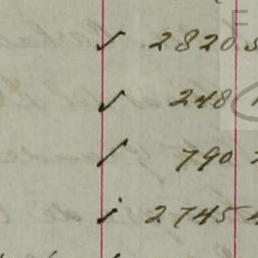 ✓ 2820
✓ 248
✓ 790
✓ 2745